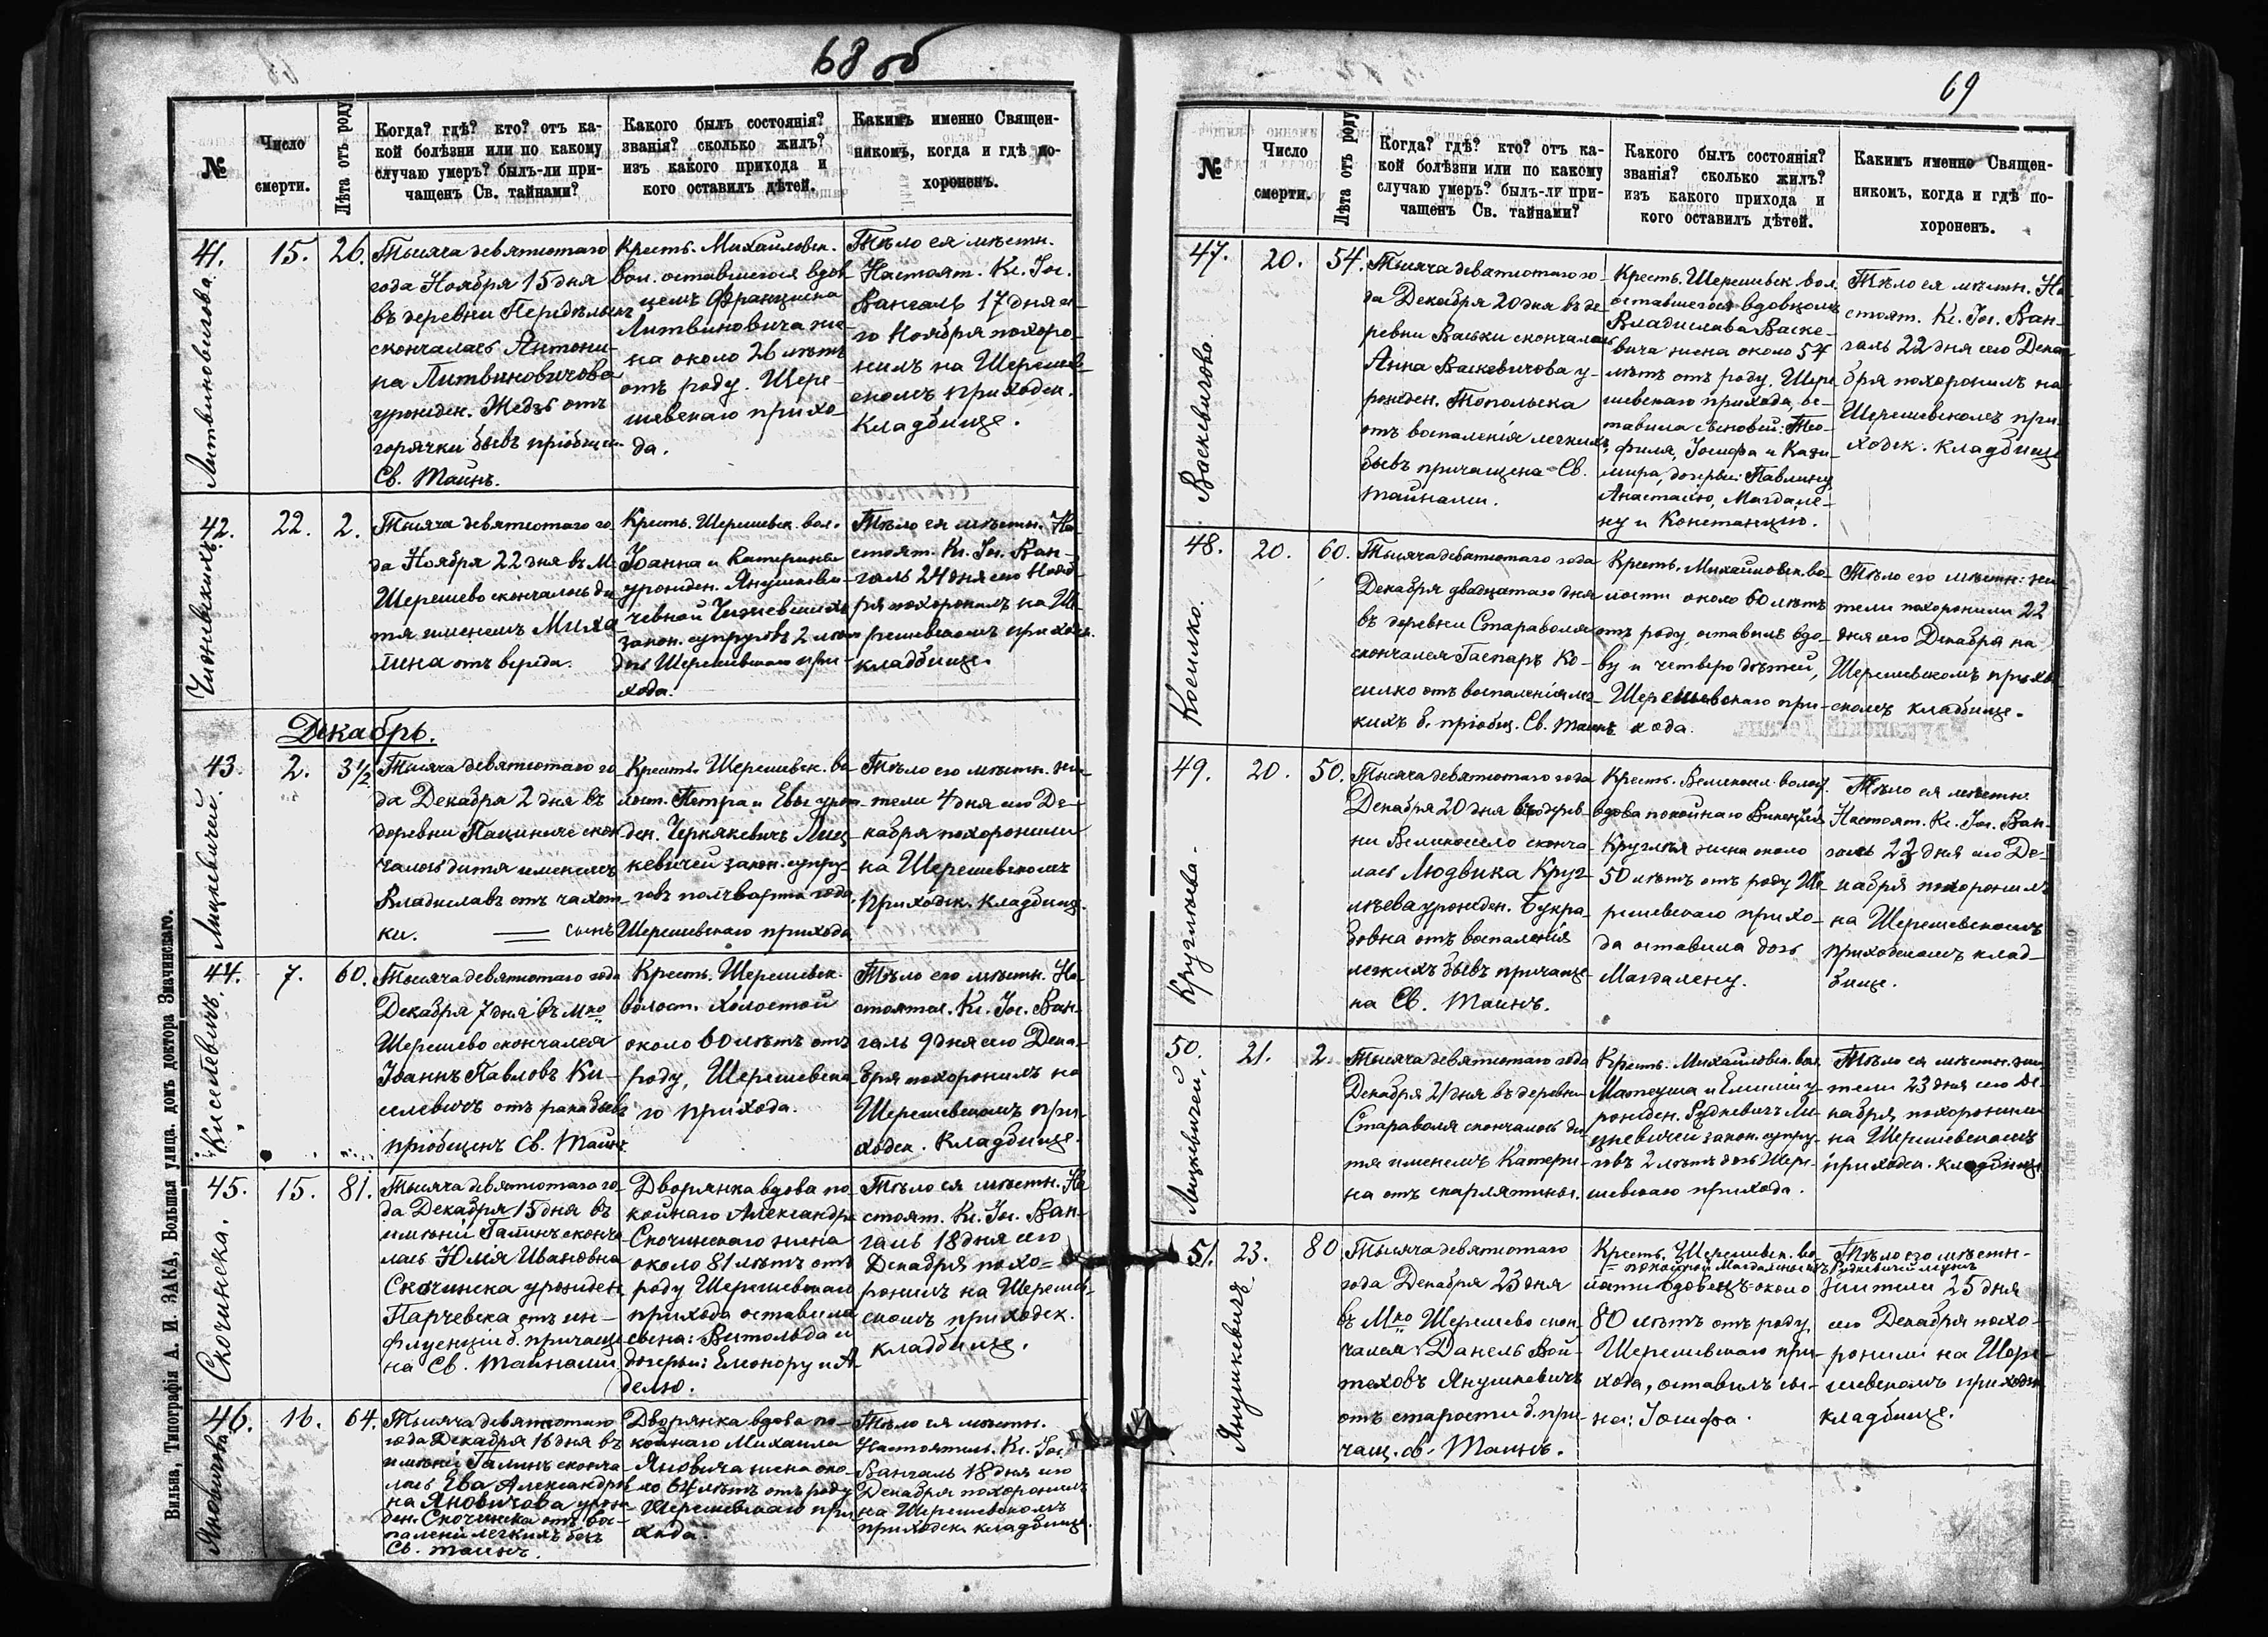 68 об
№
Число
смерти.
Лѣта отъ роду
Когда? гдѣ? кто? отъ ка-
кой болѣзни или по какому
случаю умеръ? былъ-ли при-
чащенъ Св. тайнами?
Какого былъ состоянія?
званія? сколько жилъ?
изъ какого прихода и
кого оставилъ дѣтей.
Какимъ именно Священ-
никомъ, когда и гдѣ по-
хороненъ.
41.
Литвиновичова
15.
26.
Тысяча девятисотаго
года Ноября 15 дня
въ деревни
скончалась Антони-
на Литвиновичова
урожден. Жедзь отъ
горячки бывъ пріобщен.
Св. Таинъ.
Крестъ. Михайловск.
вол. оставшегося вдов
цемъ Францишка
Литвиновича же-
на около 26 лѣтъ
отъ роду. Шере-
шевскаго прихо-
да.
Тѣло ея мѣстн.
Настоят. Кс. Іос.
Вангаль 17 дня се-
го Ноября похоро-
нилъ на Шерешев-
скомъ приходск.
Кладбище.
42.
22.
2.
Тысяча девятисотаго го
да Ноября 22 дня въ М.
Шерешево скончалось ди
тя именемъ Миха
лина отъ вереда.
Крестъ. Шерешевск. вол.
Іоанна и Катерины
урожден. Янушкеви-
чевной
закон. супруговъ 2 лѣтъ
дочь Шерешевскаго при-
хода.
Тѣло ея мѣстн. На
стоят. Кс. Іос. Ван-
галь 24 дня сего Нояб-
ря похоронилъ на Ше
решевскомъ приходск.
кладбище.
Декабрь.
43.
Лицкевичей.
2.
3½
Тысяча девятисотаго го
да Декабря 2 дня въ
деревни Пациничe скон
чалось дитя именемъ
Владиславъ отъ чахот
ки. сынъ
Крестъ. Шерешевск. во
лост. Петра и Евы урож
ден. Чернякевичъ Лиц
кевичей закон. супру-
говъ полчварта года
Шерешевскаго прихода
Тѣло его мѣстн. жи-
тели 4 дня сего Де-
кабря похоронили
на Шерешевскомъ
приходск. кладбищ.
44.
Киселевичъ.
7.
60.
Тысяча девятисотаго года
Декабря 7 дня въ М-ко
Шерешево скончался
Іоаннъ Павловъ Ки-
селевичъ отъ рака бывъ
пріобщенъ Св. Таинъ
Крестъ. Шерешевск.
волост. холостой
около 60 лѣтъ отъ
роду, Шерешевска
го прихода.
Тѣло его мѣстн. На
стоятел. Кс. Іос. Ван-
галь 9 дня сего Дека-
бря похоронилъ на
Шерешевскомъ при-
ходск. Кладбище.
45.
Скочинска.
15.
81.
Тысяча девятисотаго го-
да Декабря 15 дня въ
имѣніи Галинъ сконча
лась Юлія Ивановна
Скочинска урожден.
Парчевска отъ ин-
флуенціи б. причаще
на Св. Тайнами
Дворянка вдова по-
койнаго Александра
Скочинскаго жена
около 81 лѣтъ отъ
роду Шерешевскаго
прихода оставила
сына: Витольда и
дочерьи: Елеонору и А
делю.
Тѣло ея мѣстн. На
стоят. Кс. Іос. Ван-
галь 18 дня сего
Декабря похо=
ронилъ на Шерешев-
скомъ приходск.
кладбище.
46.
Яновичова
16.
64.
Тысяча девятисотаго
года Декабря 16 дня въ
имѣніи Галинъ сконча
лась Ева Александров
на Яновичова урож
ден. Скочинска отъ вос-
паленія легкихъ безъ
Св. таинъ.
Дворянка вдова по-
койнаго Михаила
Яновича жена око-
ло 64 лѣтъ отъ роду
Шерешевскаго при
хода.
Тѣло ея мѣстн.
Настоятель. Кс. Іос.
Вангаль 18 дня сего
Декабря похоронилъ
на Шерешевскомъ
приходск. кладбище.
Вильна, Типографія А. И. ЗАКА, Большая улица. домъ доктора Значинскаго.
69
№
Число
смерти.
Лѣта отъ роду
Когда? гдѣ? кто? отъ ка-
кой болѣзни или по какому
случаю умеръ? былъ-ли при-
чащенъ Св. тайнами?
Какого былъ состоянія?
званія? сколько жилъ?
изъ какого прихода и
кого оставилъ дѣтей.
Какимъ именно Священ-
никомъ, когда и гдѣ по-
хороненъ.
47.
Васкевичово
20.
54.
Тысяча девятисотаго го-
да Декабря 20 дня въ де-
ревни Васьки скончалась
Анна Васкевичова у-
рожден. Топольска
отъ воспаленія легкихъ,
бывъ причащена Св.
тайнами.
Крестъ. Шерешевск. вол.
оставшегося вдовцомъ
Владислава Васке-
вича жена около 54
лѣтъ отъ роду. Шере
шевскаго прихода, ос-
тавила сыновей: Тео-
филя, Іосифа и Кази-
мира, дочерьи: Павлину
Анастасію, Магдале-
ну и Констанцію.
Тѣло ея мѣстн. На
стоят. Кс. Іос. Ван-
галь 22 дня сего Дека
бря похоронилъ на
Шерешевскомъ при-
ходск. кладбище
48.
Косилко.
20.
60.
Тысяча девятисотаго года
Декабря двадцатаго дня
въ деревни Стараволя
скончался Гаспаръ Ко-
силко отъ воспаленія лег-
кихъ б. пріобщ. Св. Таинъ
Крестъ. Михайловск. во-
лости около 60 лѣтъ
отъ роду, оставилъ вдо-
ву и четверо дѣтей,
Шерешевскаго при-
хода.
Тѣло его мѣстн: жи
тели похоронили 22
дня сего Декабря на
Шерешевскомъ прихо
скомъ кладбище.
49.
Круглѣева.
20.
50.
Тысяча девятисотаго года
Декабря 20 дня въ дерев-
ни Великосело сконча-
лась Людвика Круг-
лѣева урожден. Букра-
бовна отъ воспаленія
легкихъ бывъ причаще-
на Св. Таинъ.
Крестъ. Великосел. волос.
вдова покойнаго Викентія
Круглѣя жена около
50 лѣтъ отъ роду Ше-
решевскаго прихо-
да оставила дочь
Магдалену.
Тѣло ея мѣстн.
Настоят. Кс. Іос. Ван-
галь 23 дня сего Де-
кабря похоронилъ
на Шерешевскомъ
приходскомъ клад-
бище.
50.
Лицкевичей.
21.
2
Тысяча девятисотаго года
Декабря 21 дня въ деревни
Стараволя скончалось ди-
тя именемъ Катери-
на отъ скарлятины.
Крестъ. Михайловск. вол.
Матеуша и Елениы у-
рожден. Рудкевичъ Ли-
цкевичей закон. супру-
говъ 2 лѣтъ дочь Шере-
шевскаго прихода.
Тѣло ея мѣстн. жи-
тели 23 дня сего Де-
кабря похоронили
на Шерешевскомъ
приходск. кладбище
51.
Янушкевичъ
23.
80
Тысяча девятисотаго
года Декабря 23 дня
въ М-ко Шерешево скон
чался Данель Вой-
теховъ Янушкевичъ
отъ старости б. при
чащ. св. Таинъ.
Крестъ. Шерешевск. во-
= покойной Магдалены изъ Рудкевичей мужъ
лости вдовецъ около
80 лѣтъ отъ роду
Шерешевскаго при-
хода, оставилъ сы-
на: Іосифа.
Тѣло его мѣстн.
жители 25 дня
сего Декабря похо-
ронили на Шере-
шевскомъ приходск.
кладбище.